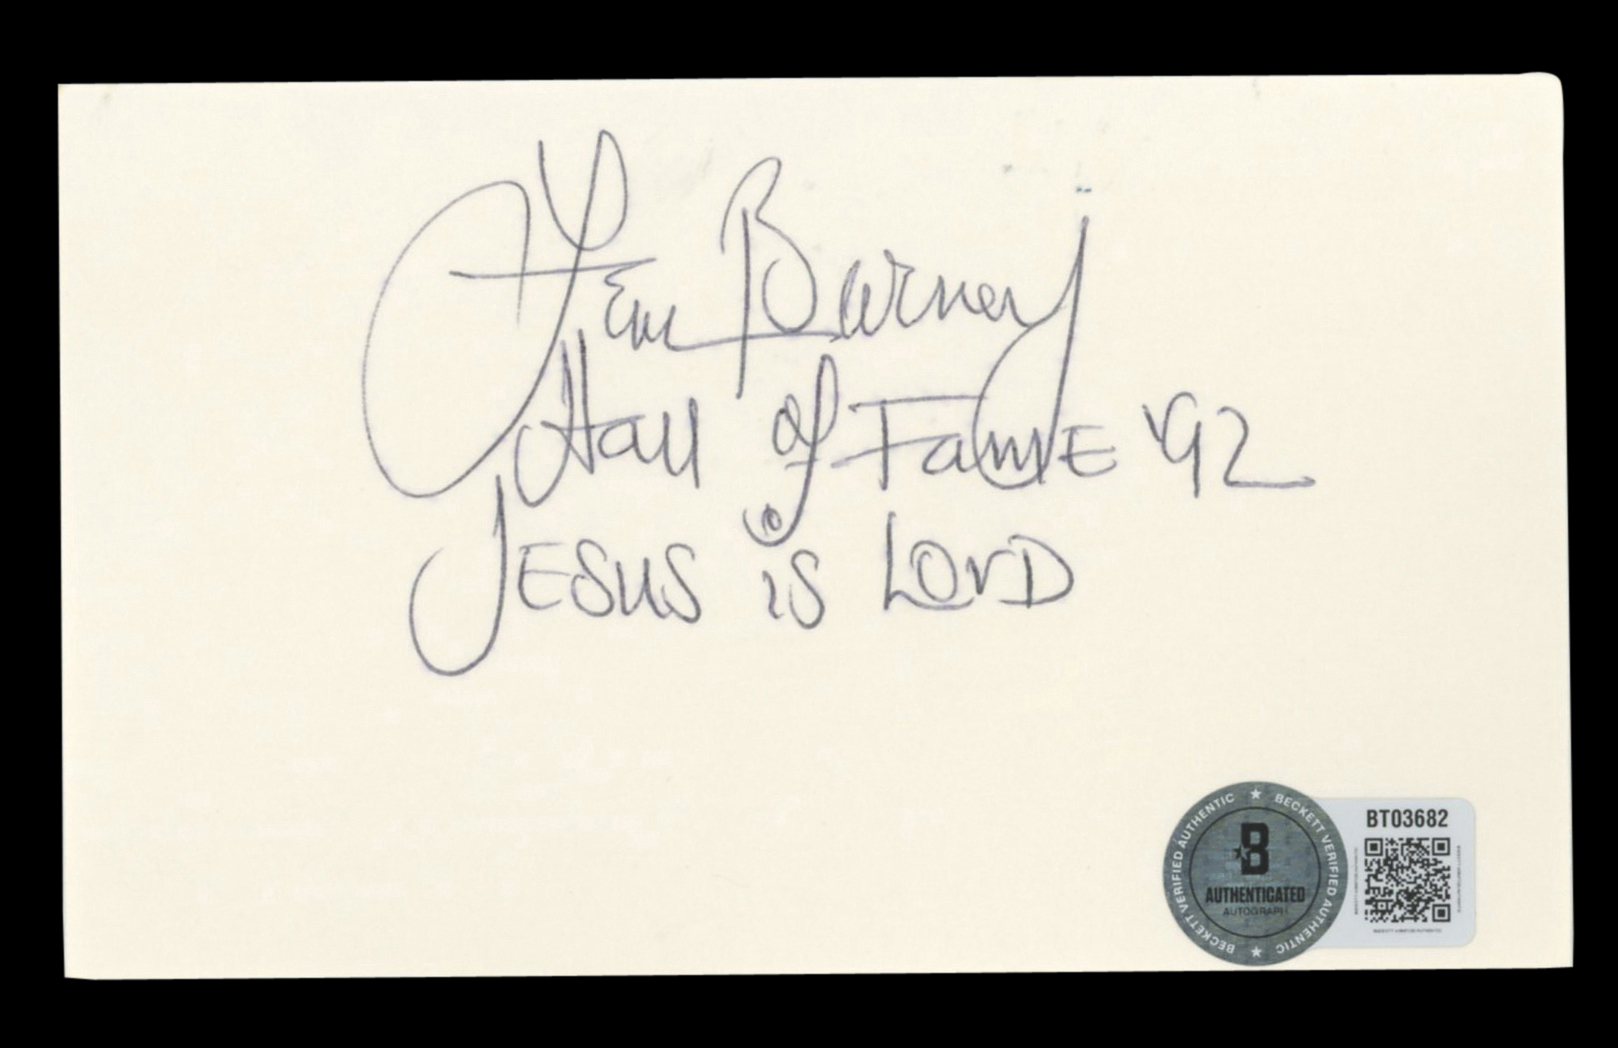 Lem Barney
Hall of Fame '92
Jesus is Lord
BECKETT VERIFIED AUTHENTIC ★ BECKETT VERIFIED AUTHENTIC ★
B
AUTHENTICATED
AUTOGRAPH
BT03682